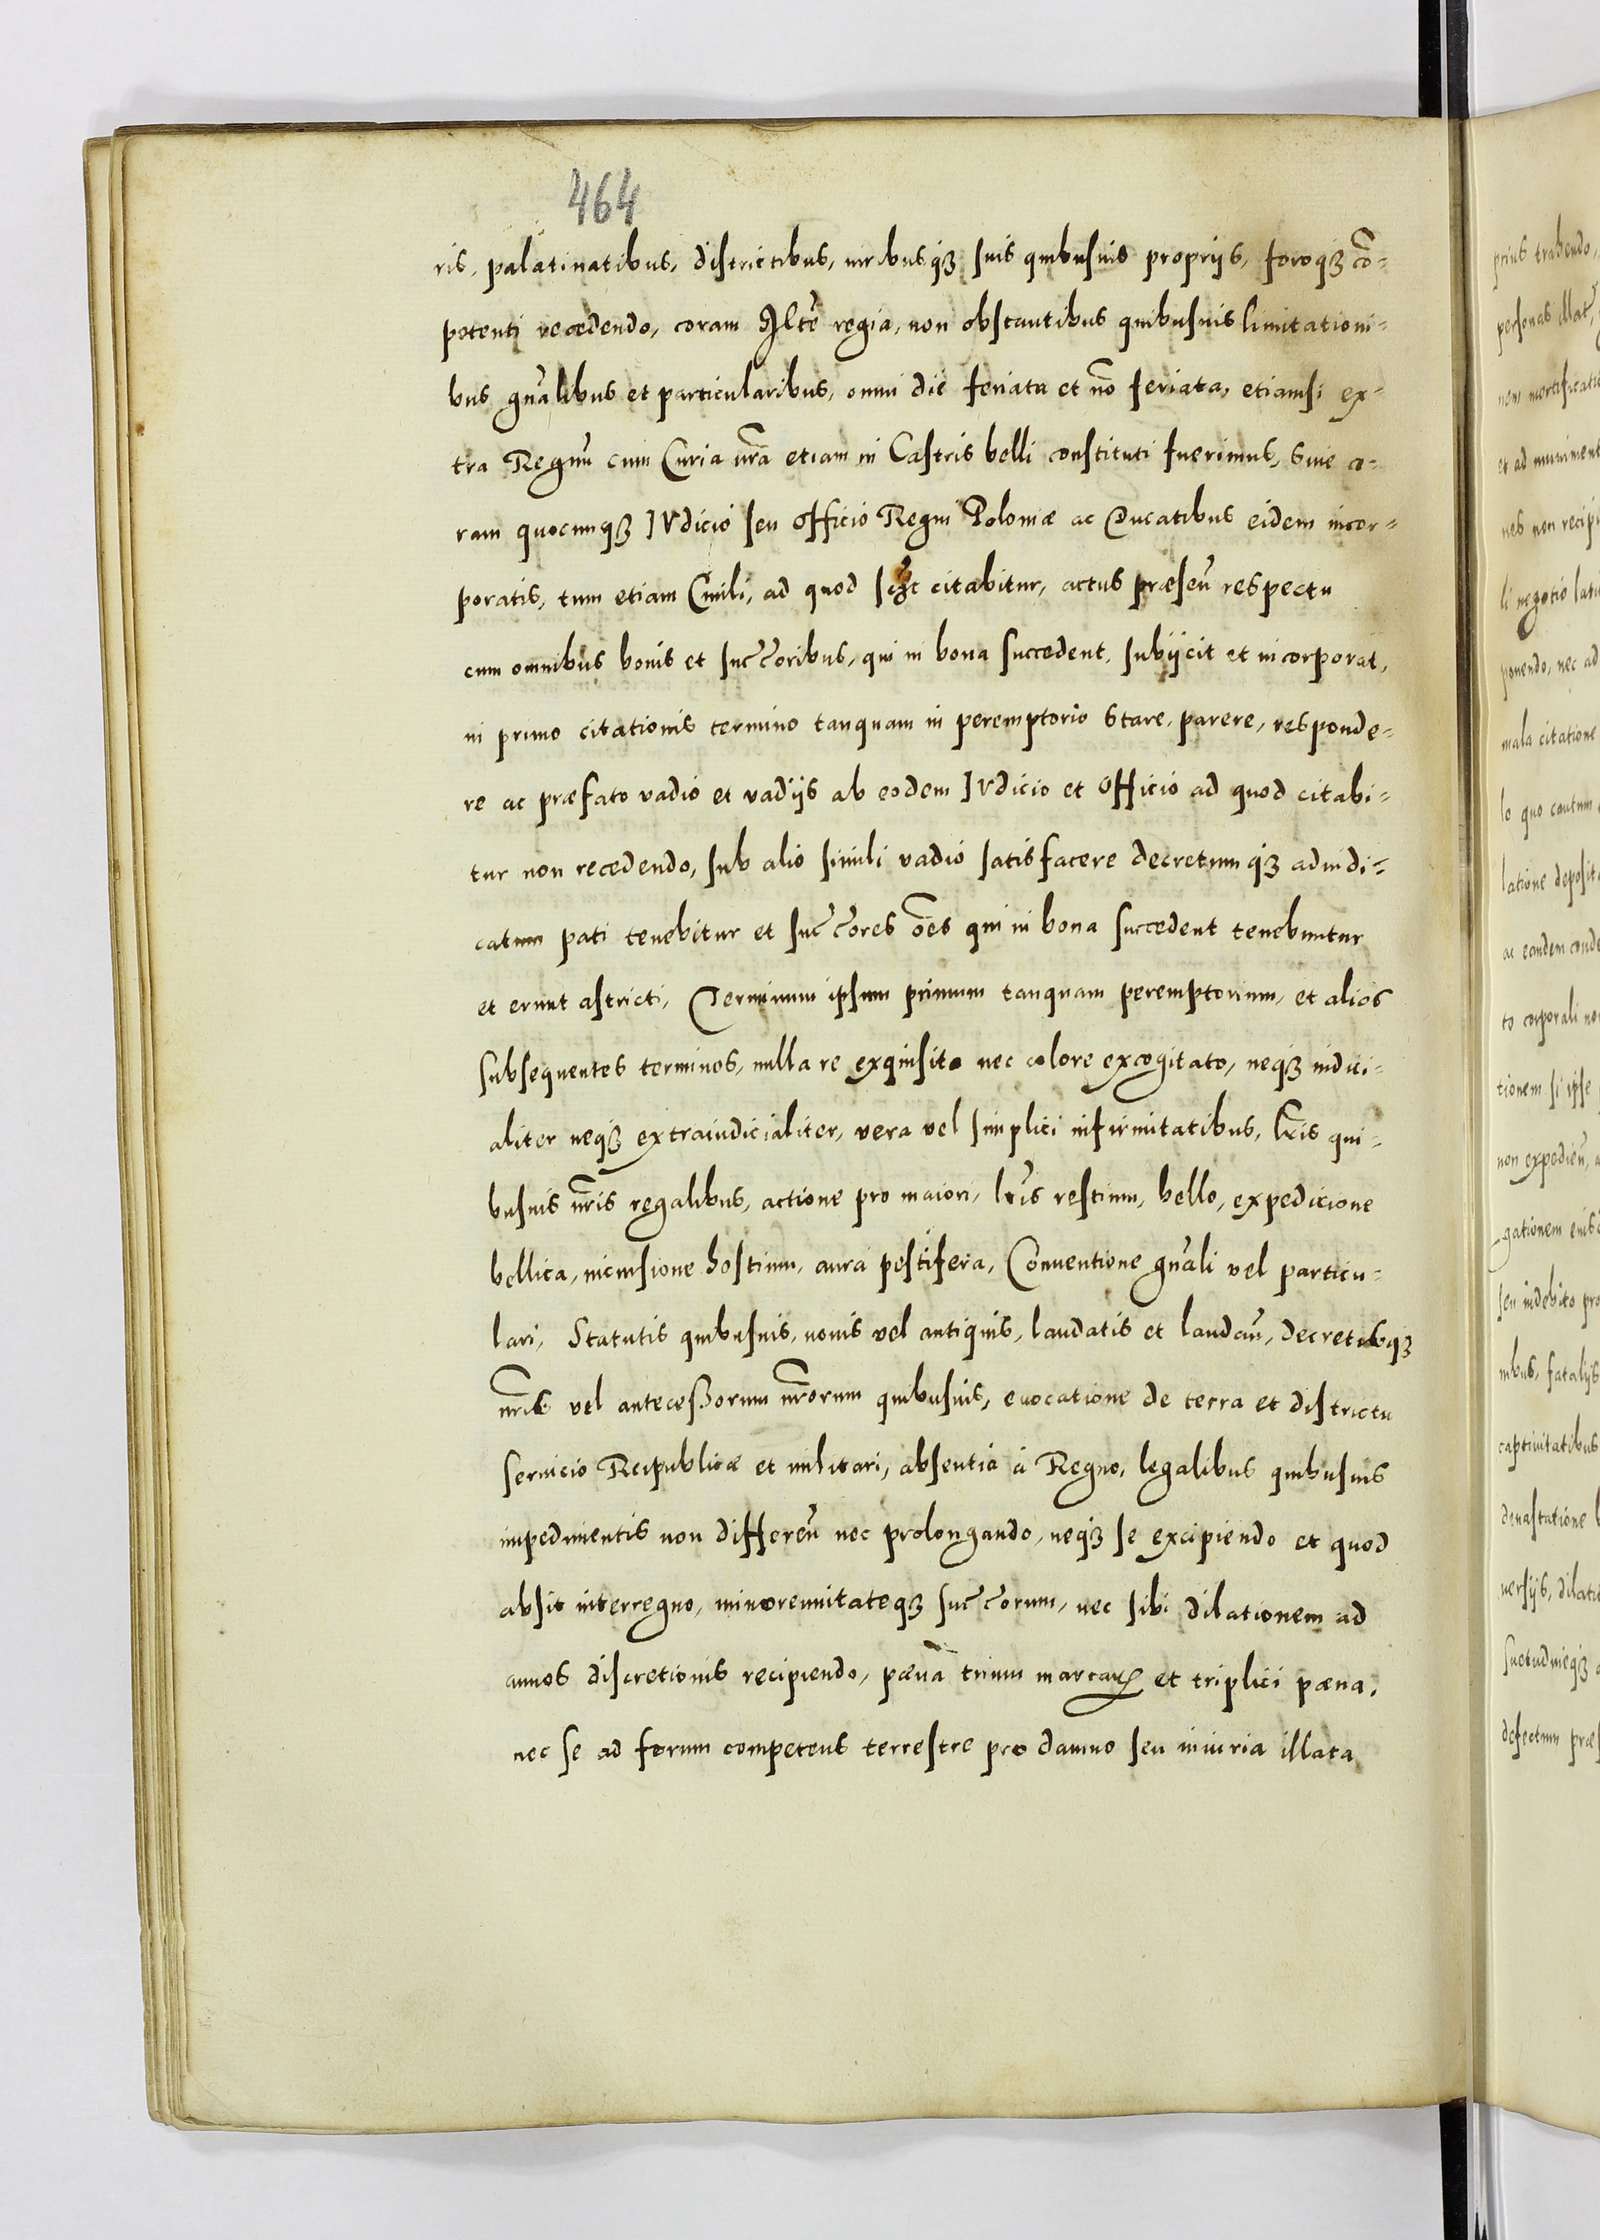 464
ris, palatinatibus, districtibus, iuribusqꝫ suis quibusuis proprijs, foroqꝫ cõ-
petenti recedendo, coram Mlte regia, non obstantibus quibusuis limitationi-
bus gñalibus et particularibus, omni die feriata et nõ feriata, etiamsi ex-
tra Regnũ cum Curia nrã etiam in Castris belli constituti fuerimus, Siue co-
ram quocunqꝫ IVdicio seu officio Regni Poloniæ ac Ducatibus eidem incor-
poratis, tum etiam Ciuili, ad quod citabitur, actus præseñ respectu
cum omnibus bonis et succ̃oribus, qui in bona succedent, subijcit et incorporat,
in primo citationis termino tanquam in peremptorio Stare, parere, responde-
re ac præfato vadio et vadijs ab eodem IVdicio et Officio ad quod citabi-
tur non recedendo, sub alio simili vadio satisfacere decretumqꝫ adiudi-
catum pati tenebitur et succ̃ores oẽs qui in bona succedent tenebuntur
et erunt astricti, Terminum ipsum primum tanquam peremptorium, et alios
subsequentes terminos, nulla re exquisita nec colore excogitato, neqꝫ iudici-
aliter neqꝫ extraiudicialiter, vera vel simplici infirmitatibus, lr̃is qui-
busuis nr̃is regalibus, actione pro maiori, lr̃is restium, bello, expedicione
bellica, incursione hostium, aura pestifera, Conuentione gñali vel particu-
lari, Statutis quibusuis, nouis vel antiquis, laudatis et laudañ, decretisqꝫ
nr̃is vel antecessorum nr̃orum quibusuis, euocatione de terra et districtu
seruicio Reipublicæ et militari, absentia à Regno, legalibus quibusuis
impedimentis non differeñ nec prolongando, neqꝫ se excipiendo et quod
absit interregno, minorennitateqꝫ succ̃orum, nec sibi dilationem ad
annos discretionis recipiendo, pæna trium marcaꝝ et triplici pæna,
nec se ad forum competens terrestre pro damno seu iniuria illata
prius trahendo,
personas illat,
nem mortificatio
et ad muniment
nes non recipi
li negotio latu
ponendo, nec ad
mala citatione
lo quo cautum
latione deposit
ac eandem conde
to corporali no
tionem si ipse
non expedieñ, a
gationem eius
seu indebito pro
nibus, fatalijs
captiuitatibus
deuastatione
uersijs, dilatio
suetudineqꝫ
defectum præs